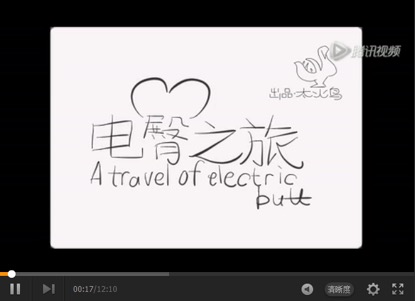 腾讯视频
出品 太火鸟
电臀之旅
A travel of electric
butt
00:17/12:10
清晰度